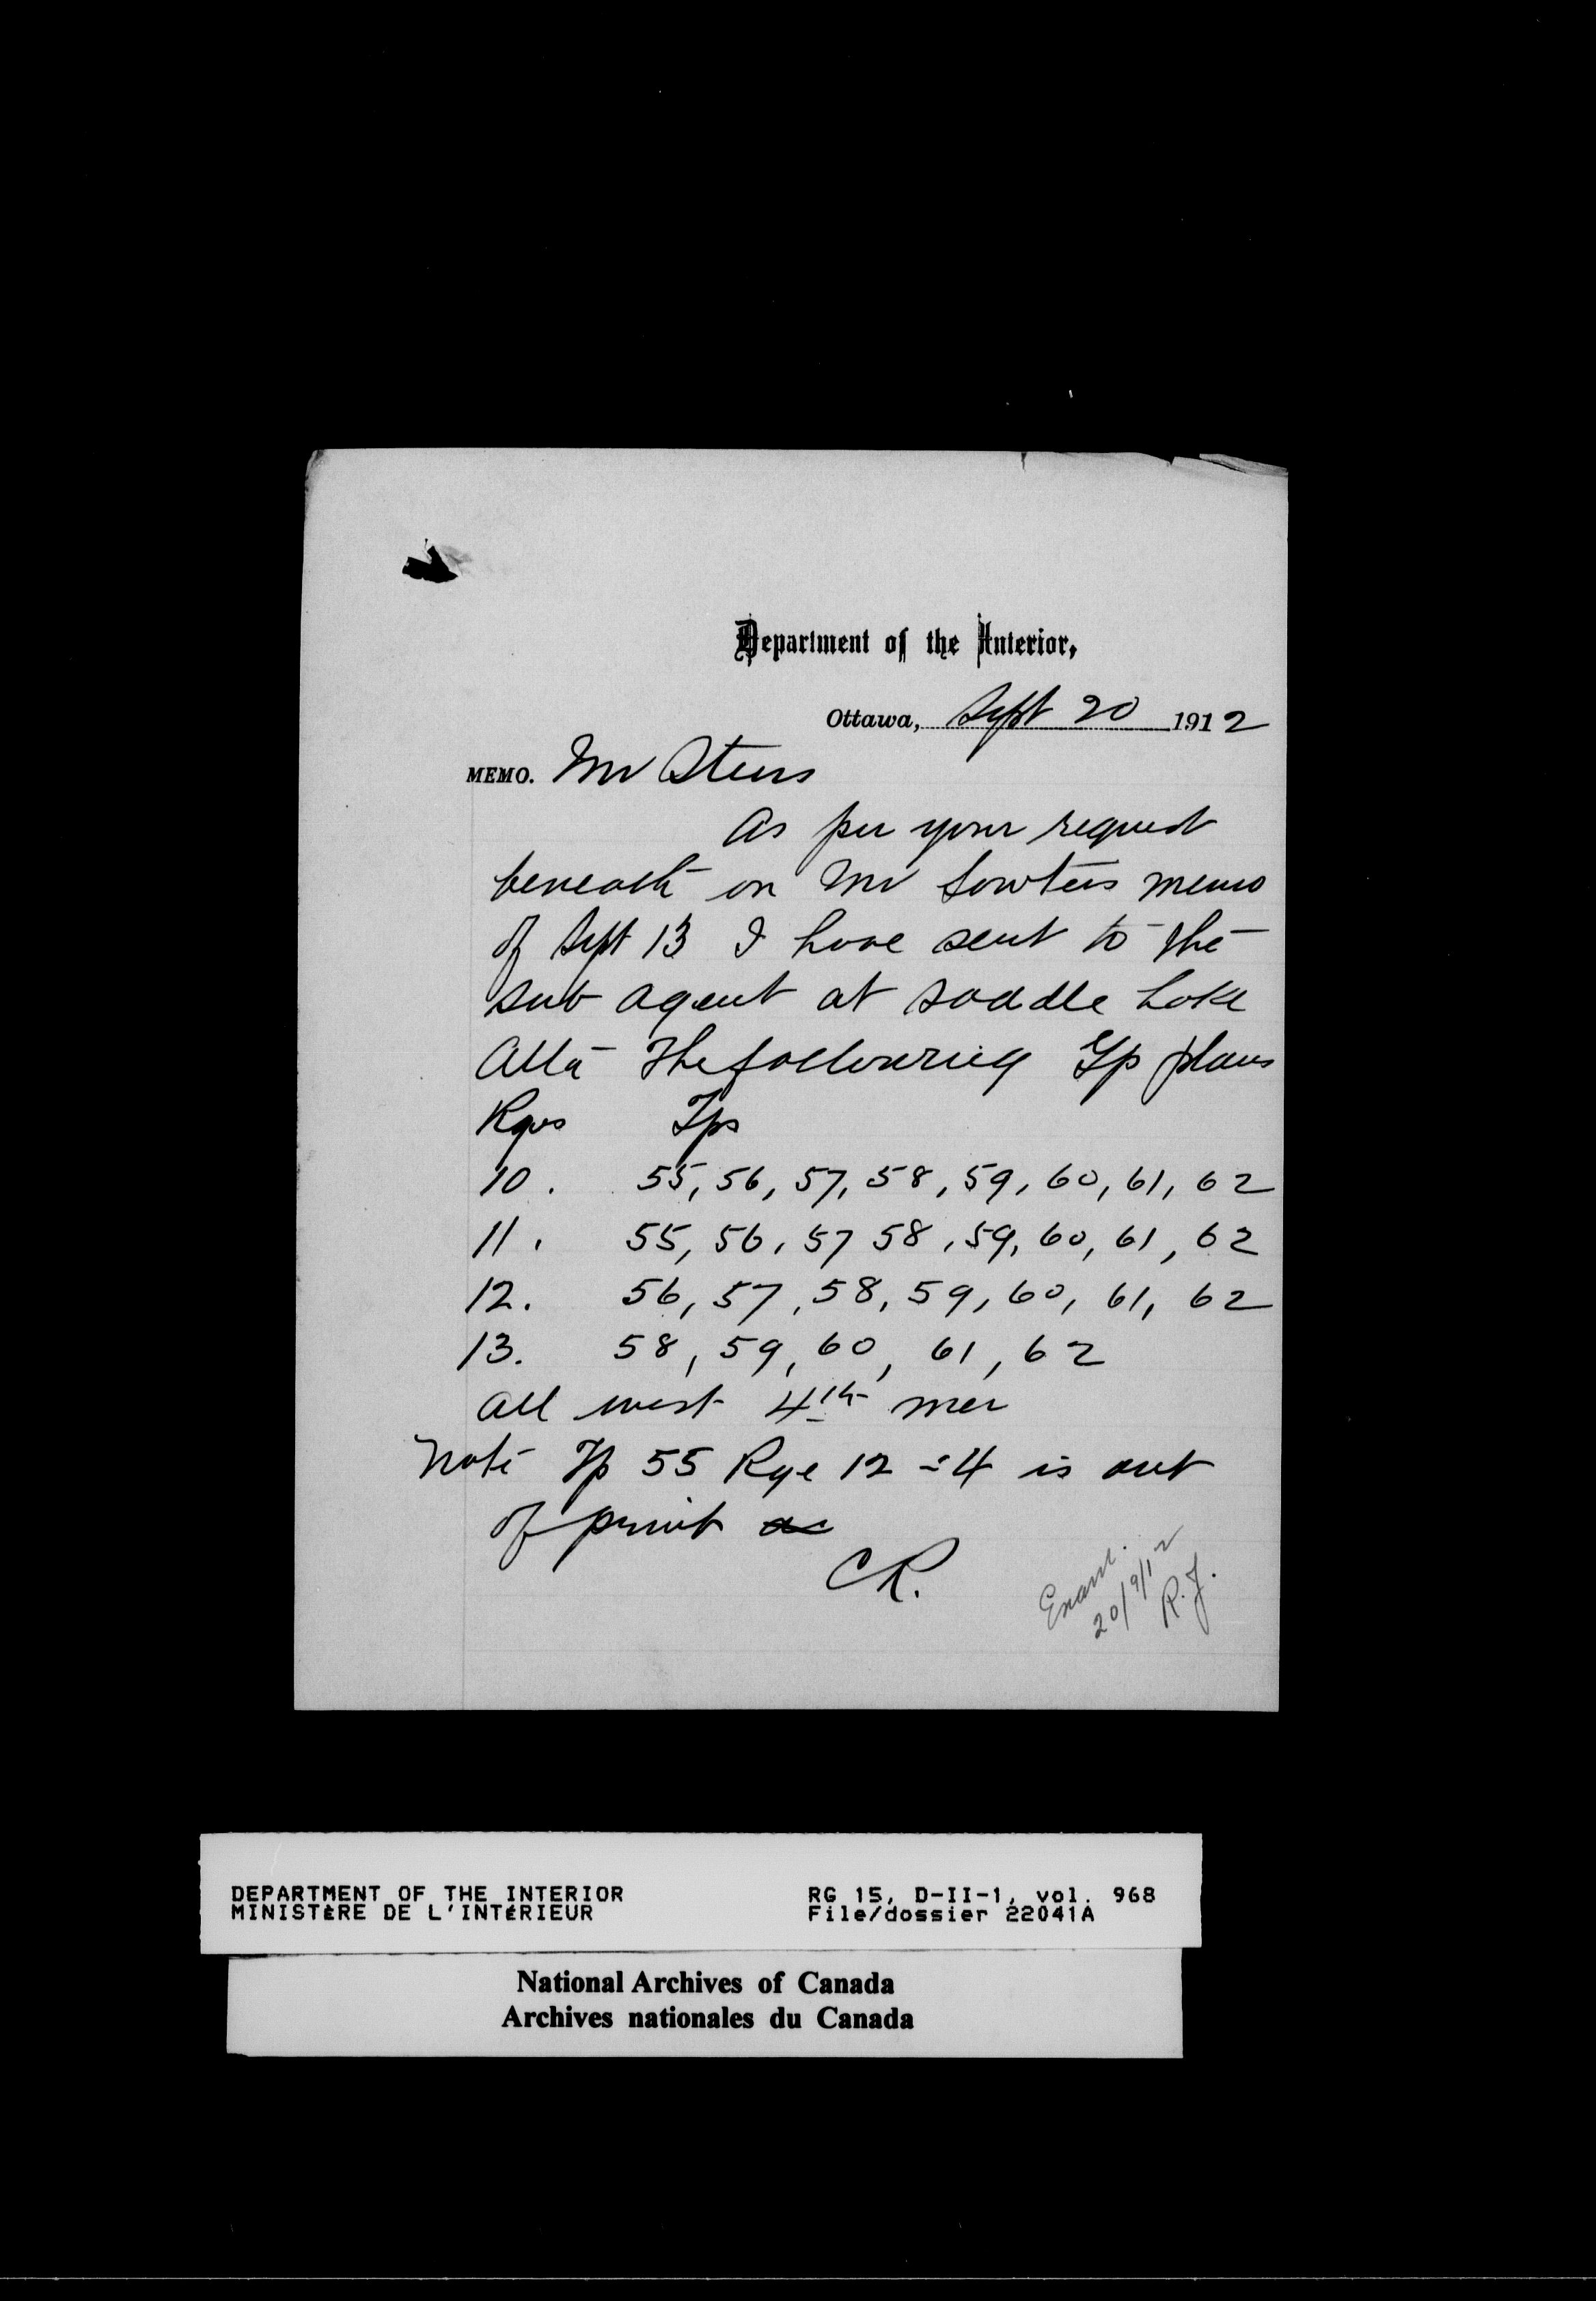 Department of the Interior,
Ottawa, Sept 20 1912
MEMO. Mr Steers
As per your request
beneath on Mr Sowters memo
of Sept 13 I have sent to the
sub agent at Saddle Lake
Alta The following Tp plans
Rges Tps
10. 55, 56, 57, 58, 59, 60, 61, 62
11. 55, 56, 57 58, 59, 60, 61, 62
12. 56, 57, 58, 59, 60, 61, 62
13. 58, 59, 60, 61, 62
All west 4th mer
Note Tp 55 Rge 12 = 4 is out
of print
CR.
Exam.
20/9/12
R.J.
DEPARTMENT OF THE INTERIOR
MINISTÈRE DE L'INTÉRIEUR
RG 15, D-II-1, vol. 968
File/dossier 22041A
National Archives of Canada
Archives nationales du Canada